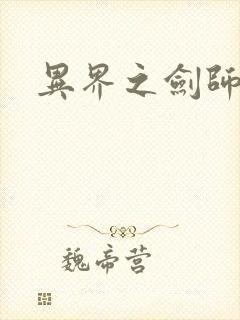 異界之劍師
魏帝营